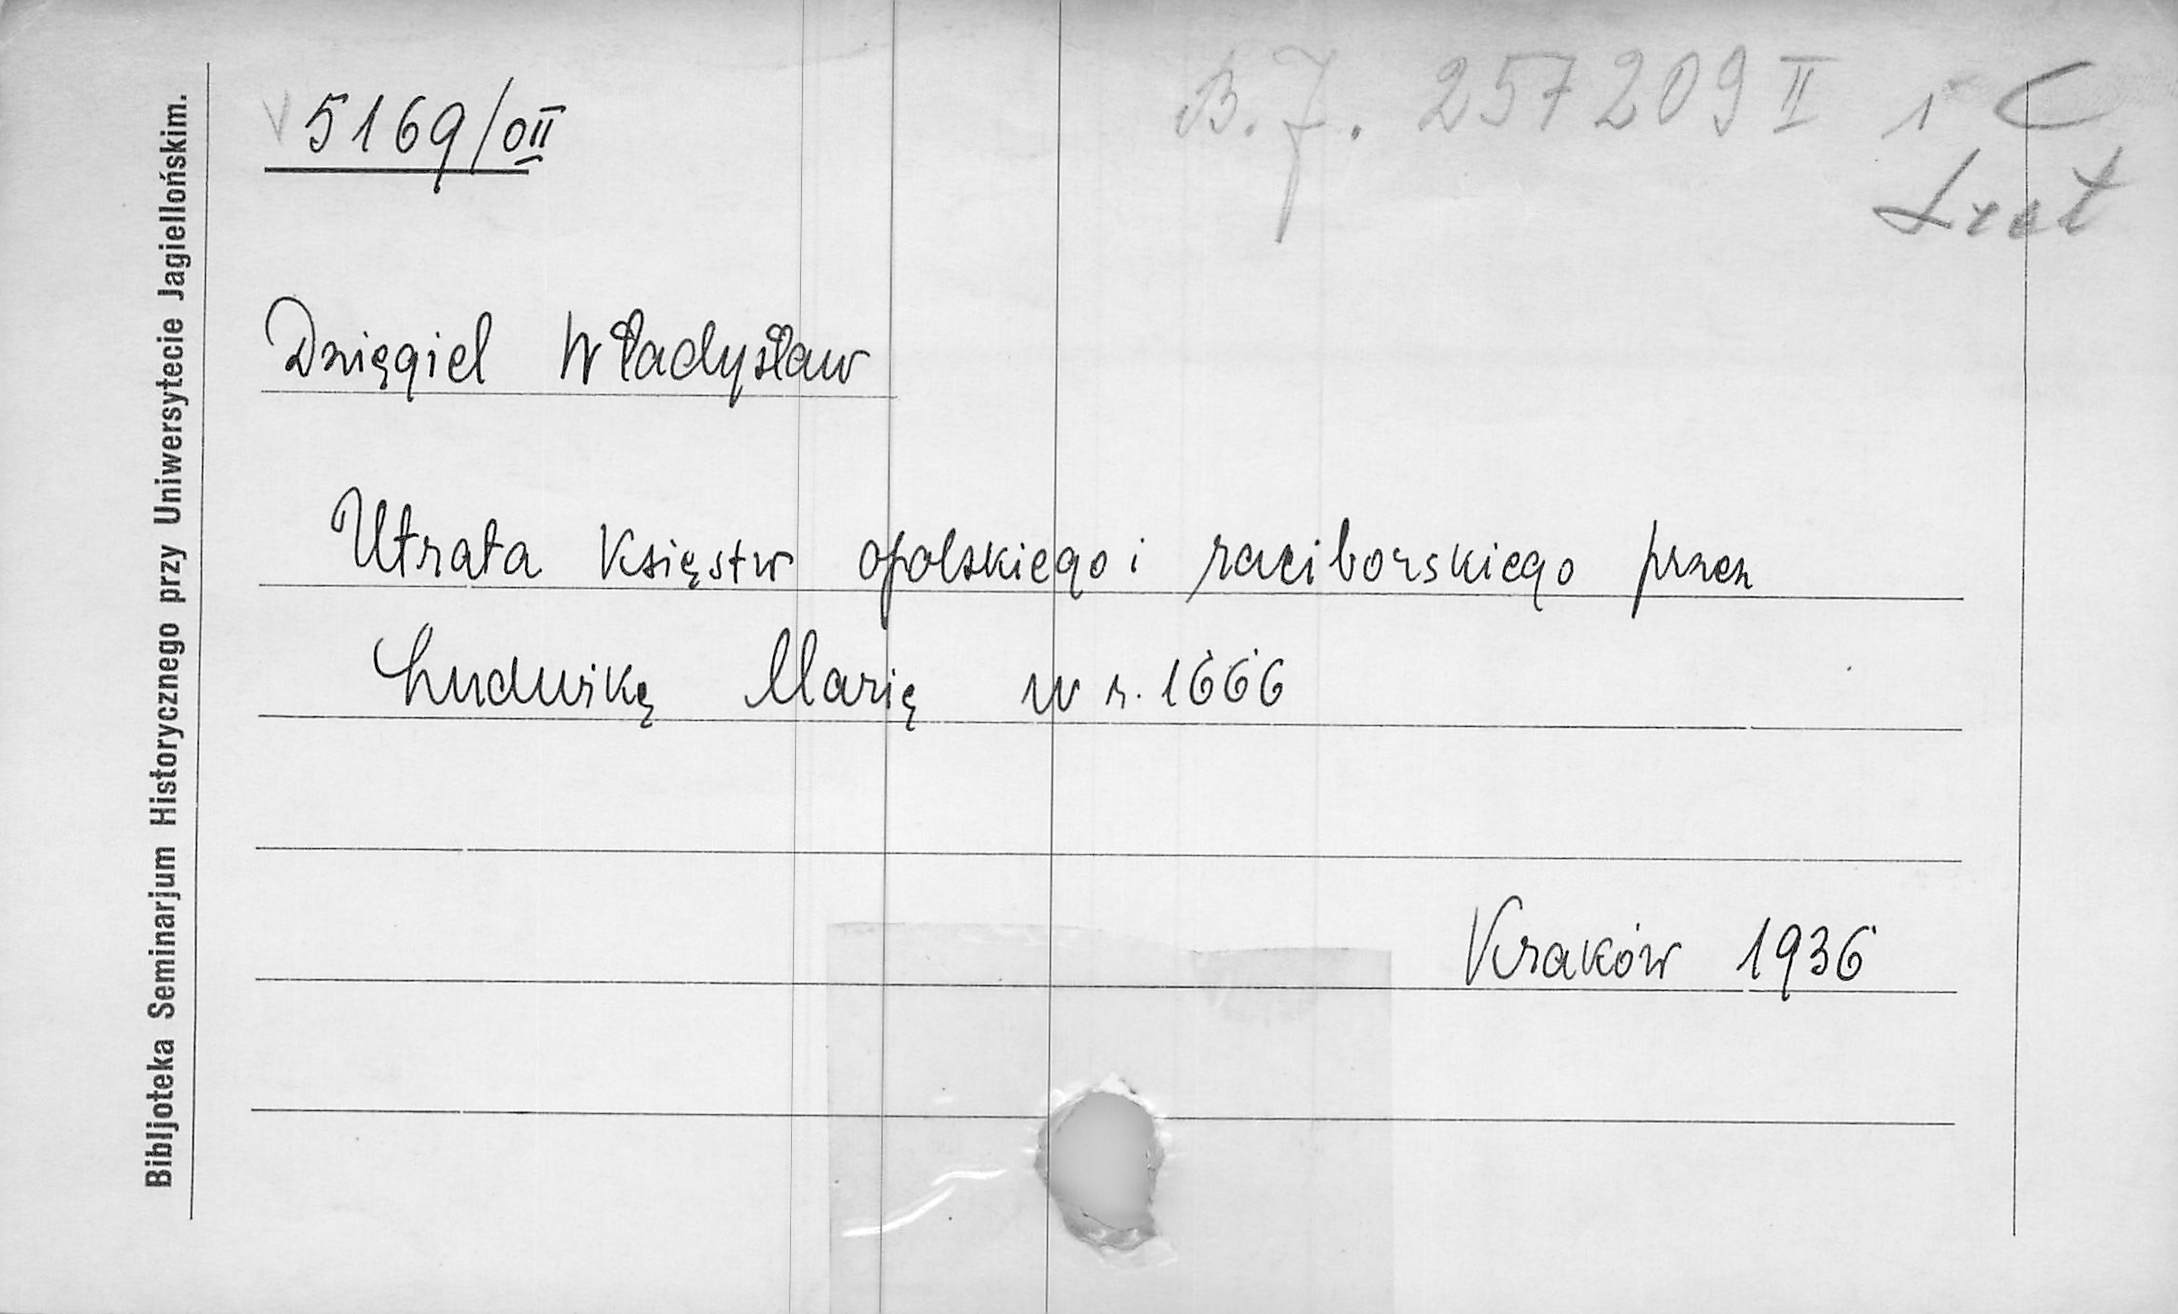 5169/0II
B. J. 257209 II 1 C
Dzięgiel Władysław
Utrata księstw opolskiego i raciborskiego przez
Ludwikę Marię w r. 1666
Kraków 1936
Bibljoteka Seminarjum Historycznego przy Uniwersytecie Jagiellońskim.